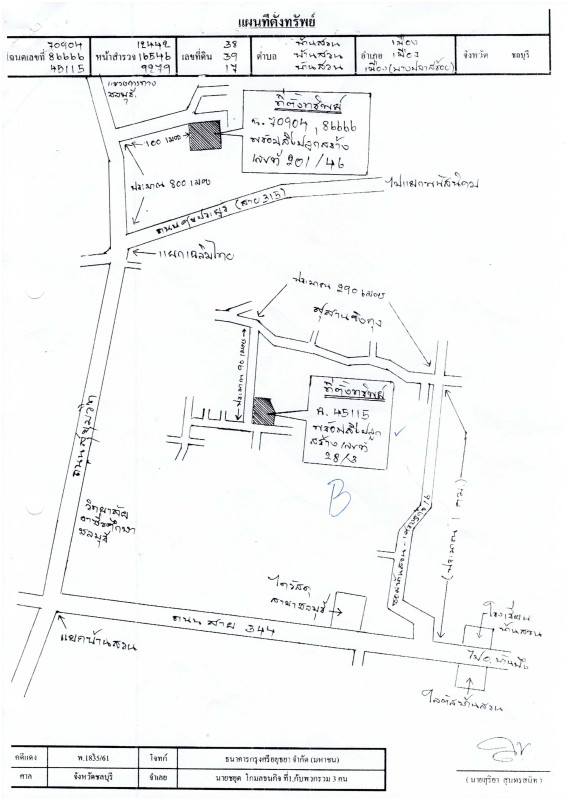 แผนที่ตั้งทรัพย์
โฉนดเลขที่ 70904 86666 45115
หน้าสำรวจ 12442 16546 9279
เลขที่ดิน 38 39 17
ตำบล บ้านสวน บ้านสวน บ้านสวน
อำเภอ เมือง เมือง เมือง(บางปลาสร้อย)
จังหวัด ชลบุรี
แขวงการทาง
ชลบุรี
ที่ตั้งทรัพย์
ฉ. 70904, 86666
พร้อมสิ่งปลูกสร้าง
เลขที่ 201/46
100 เมตร
ประมาณ 800 เมตร
ไปแยกพนัสนิคม
ถนนศุขประยูร (สาย 315)
แยกเฉลิมไทย
ประมาณ 290 เมตร
สุสานจิตกุง
ประมาณ 90 เมตร
ที่ตั้งทรัพย์
ฉ. 45115
พร้อมสิ่งปลูก
สร้าง เลขที่
28/3
B
ถนนสุขุมวิท
(ประมาณ 1 กม.)
วิทยาลัย
อาชีวศึกษา
ชลบุรี
ไทวัสดุ
สาขาชลบุรี
โรงเรียน
บ้านสวน
ถนน สาย 344
ไป อ.บ้านบึง
แยกบ้านสวน
โลตัสบ้านสวน
คดีแดง พ.1835/61 โจทก์ ธนาคารกรุงศรีอยุธยา จำกัด (มหาชน)
ศาล จังหวัดชลบุรี จำเลย นายชยุต โกมลธนกิจ ที่1,กับพวกรวม 3 คน
(นายสุริยา สุนทรสนิท)